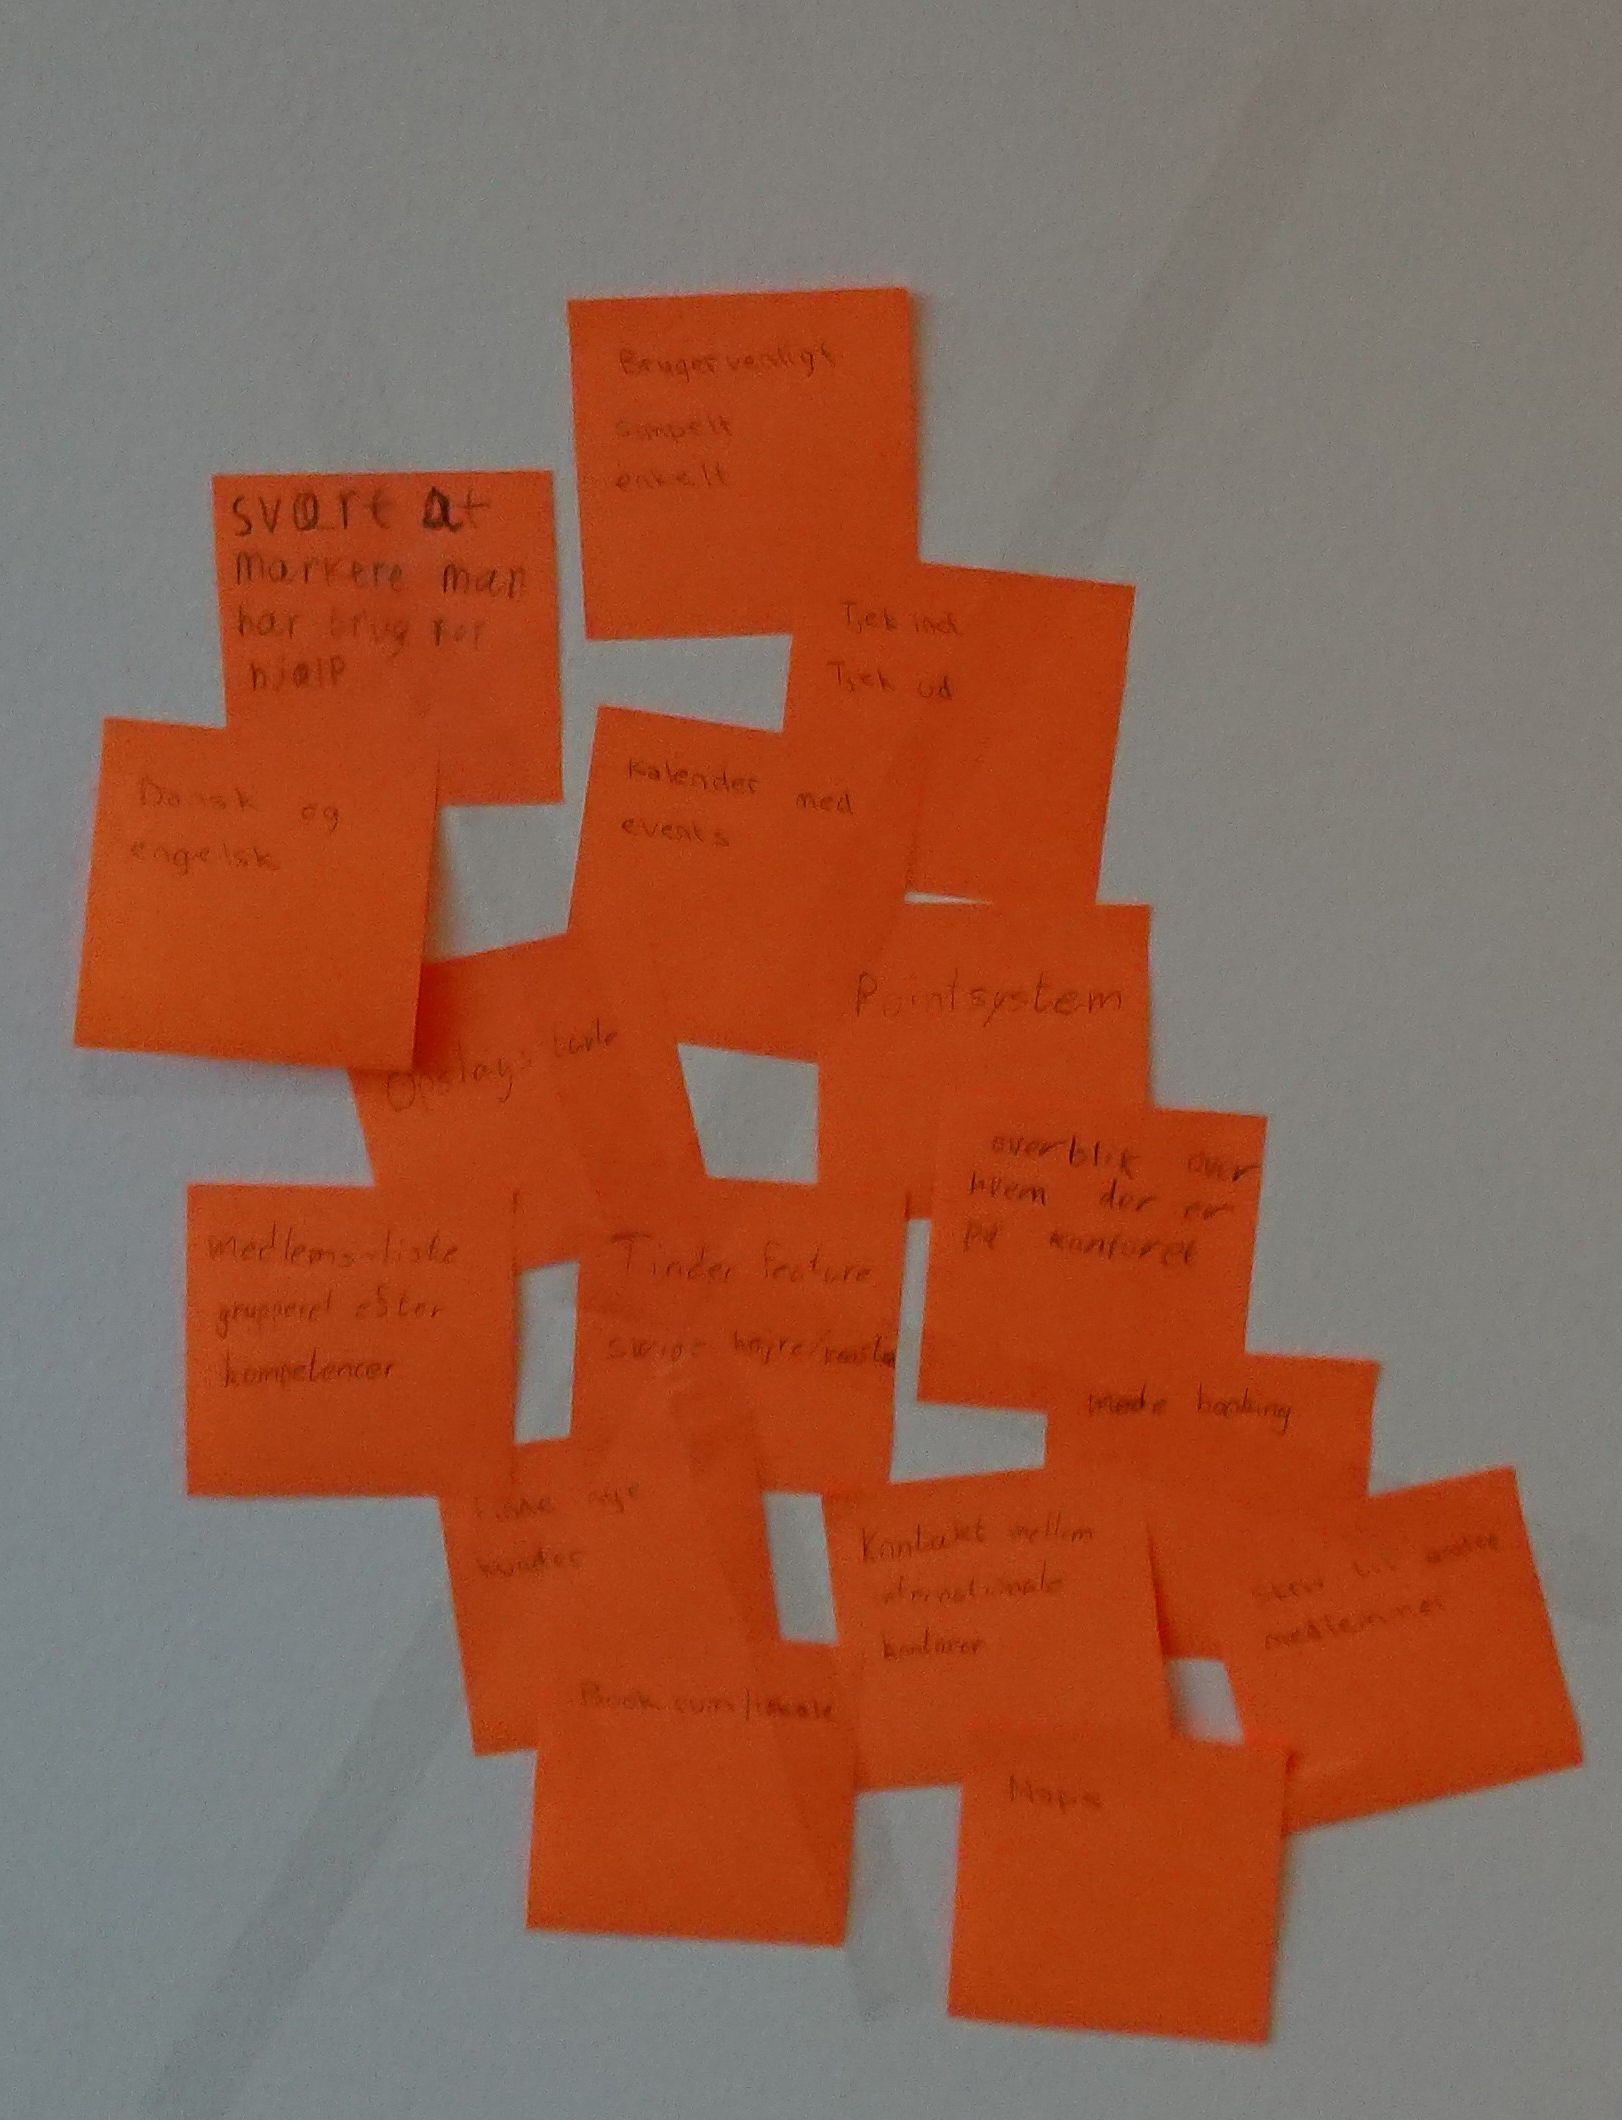 Brugervenligt
simpelt
enkelt
svært at
markere man
har brug for
hjælp
Tjek ind
Tjek ud
Dansk og
engelsk
Kalender med
events
Opslags tavle
Pointsystem
overblik over
hvem der er
på kontoret
medlems-liste
grupperet efter
kompetencer
Tinder feature
swipe højre/venstre
møde booking
Finde nye
kunder
Kontakt mellem
internationale
kontorer
Skriv til andre
medlemmer
Book rum/lokale
Maps